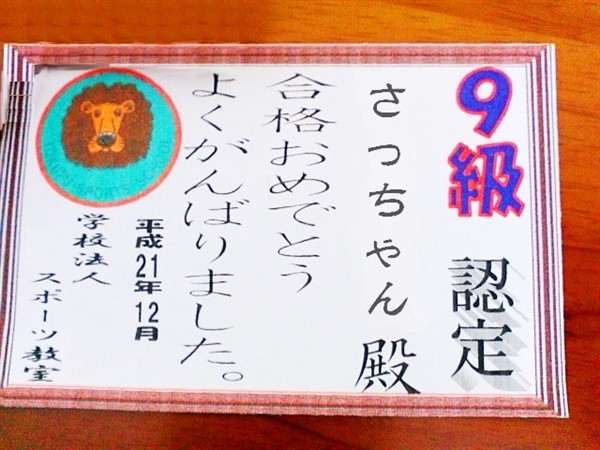 9級 認定
さっちゃん 殿
合格おめでとう
よくがんばりました。
平成21年12月
学校法人
スポーツ教室